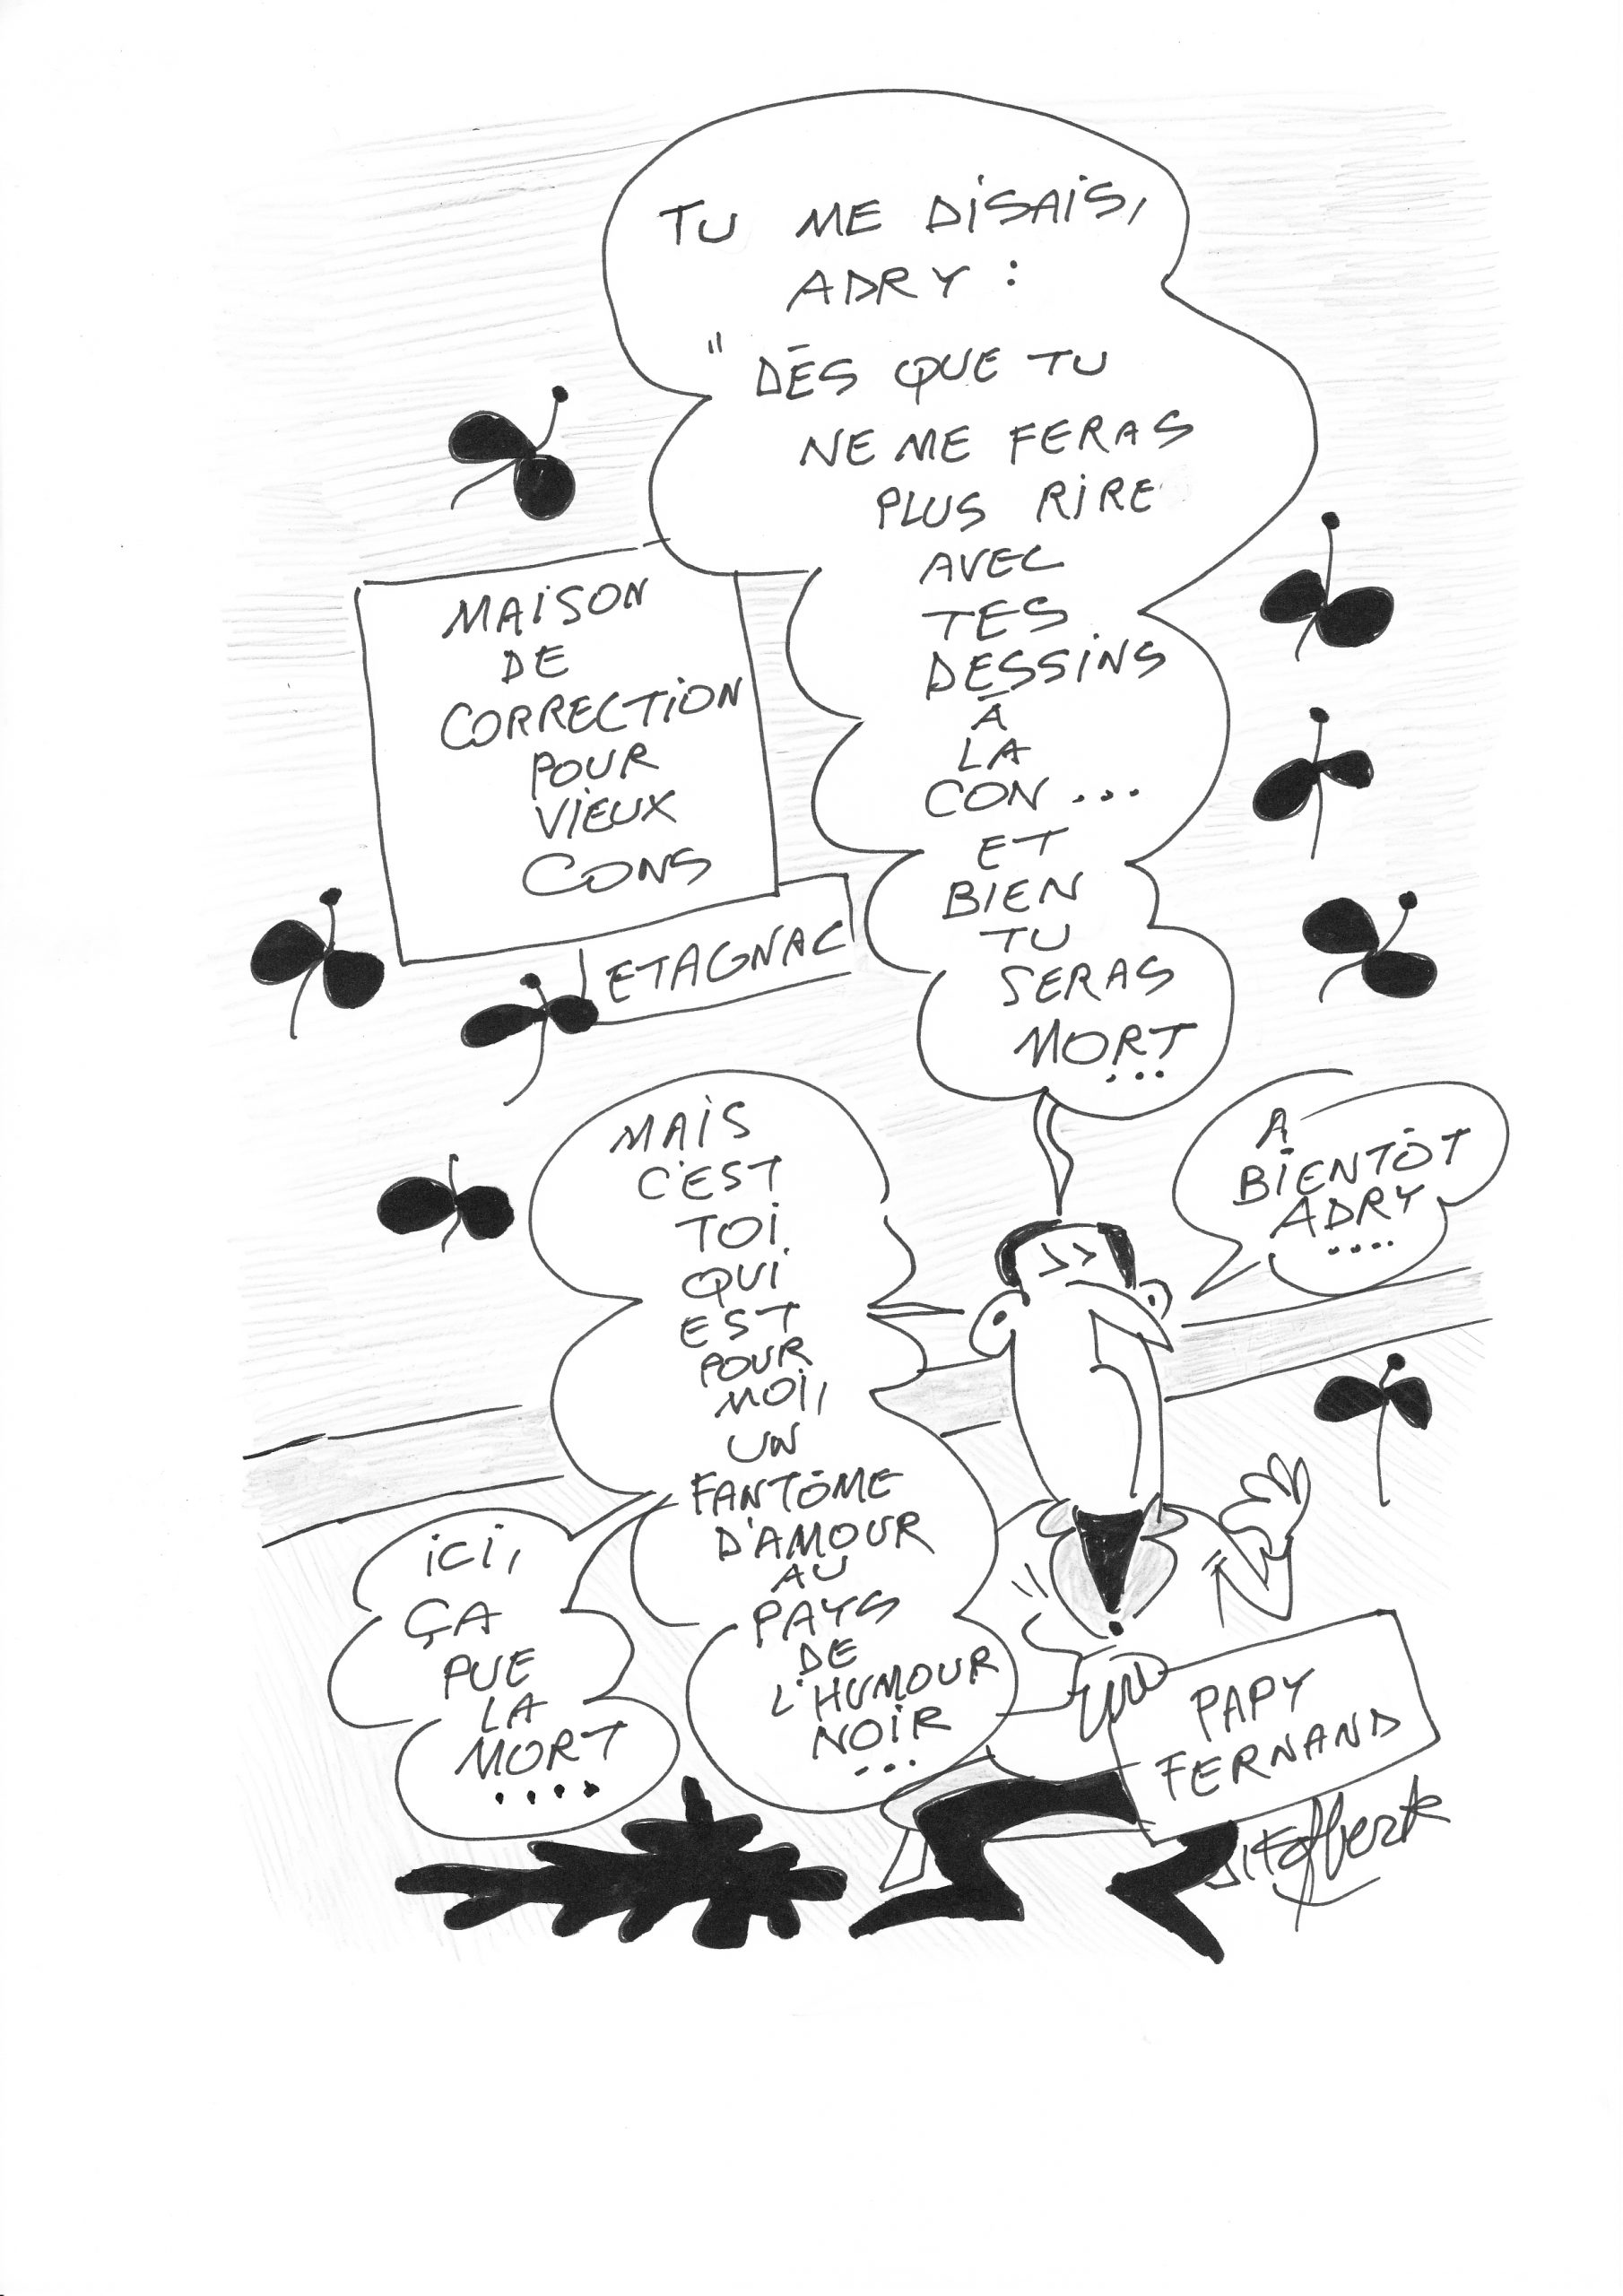 TU ME DISAIS,
ADRY :
" DĒS QUE TU
NE ME FERAS
PLUS RIRE
AVEC
TES
DESSINS
Ā
LA
CON ...
ET
BIEN
TU
SERAS
MORT
...
MAISON
DE
CORRECTION
POUR
VIEUX
CONS
ETAGNAC
MAIS
C'EST
TOI
QUI
EST
POUR
MOI,
UN
FANTÔME
D'AMOUR
AU
PAYS
DE
L'HUMOUR
NOIR
...
A
BIENTÔT
ADRY
....
ICI,
ÇA
PUE
LA
MORT
....
PAPY
FERNAND